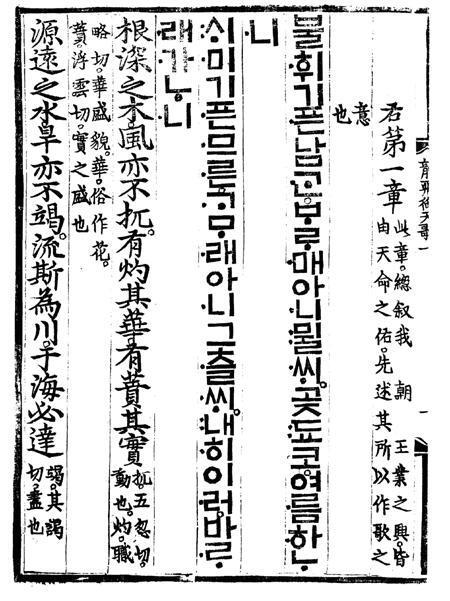 龍飛御天歌一
一
右第一章
此章。總叙我 朝 王業之興。皆
由天命之佑。先述其所以作歌之
意
也
불휘기픈남ᄀᆞᆫᄇᆞᄅᆞ매아니뮐ᄊᆡ。곶됴코。여름하ᄂᆞ
니
ᄉᆡ미기픈므른ᄀᆞᄆᆞ래아니그츨ᄊᆡ。내히이러。바ᄅᆞ
래가ᄂᆞ니
根深之木。風亦不扤。有灼其華。有蕡其實
扤。五忽切。
動也。灼。職
略切。華盛貌。華。俗作花。
蕡。浮雲切。實之盛也
源遠之水。旱亦不竭。流斯為川。于海必達
竭。其謁
切。盡也